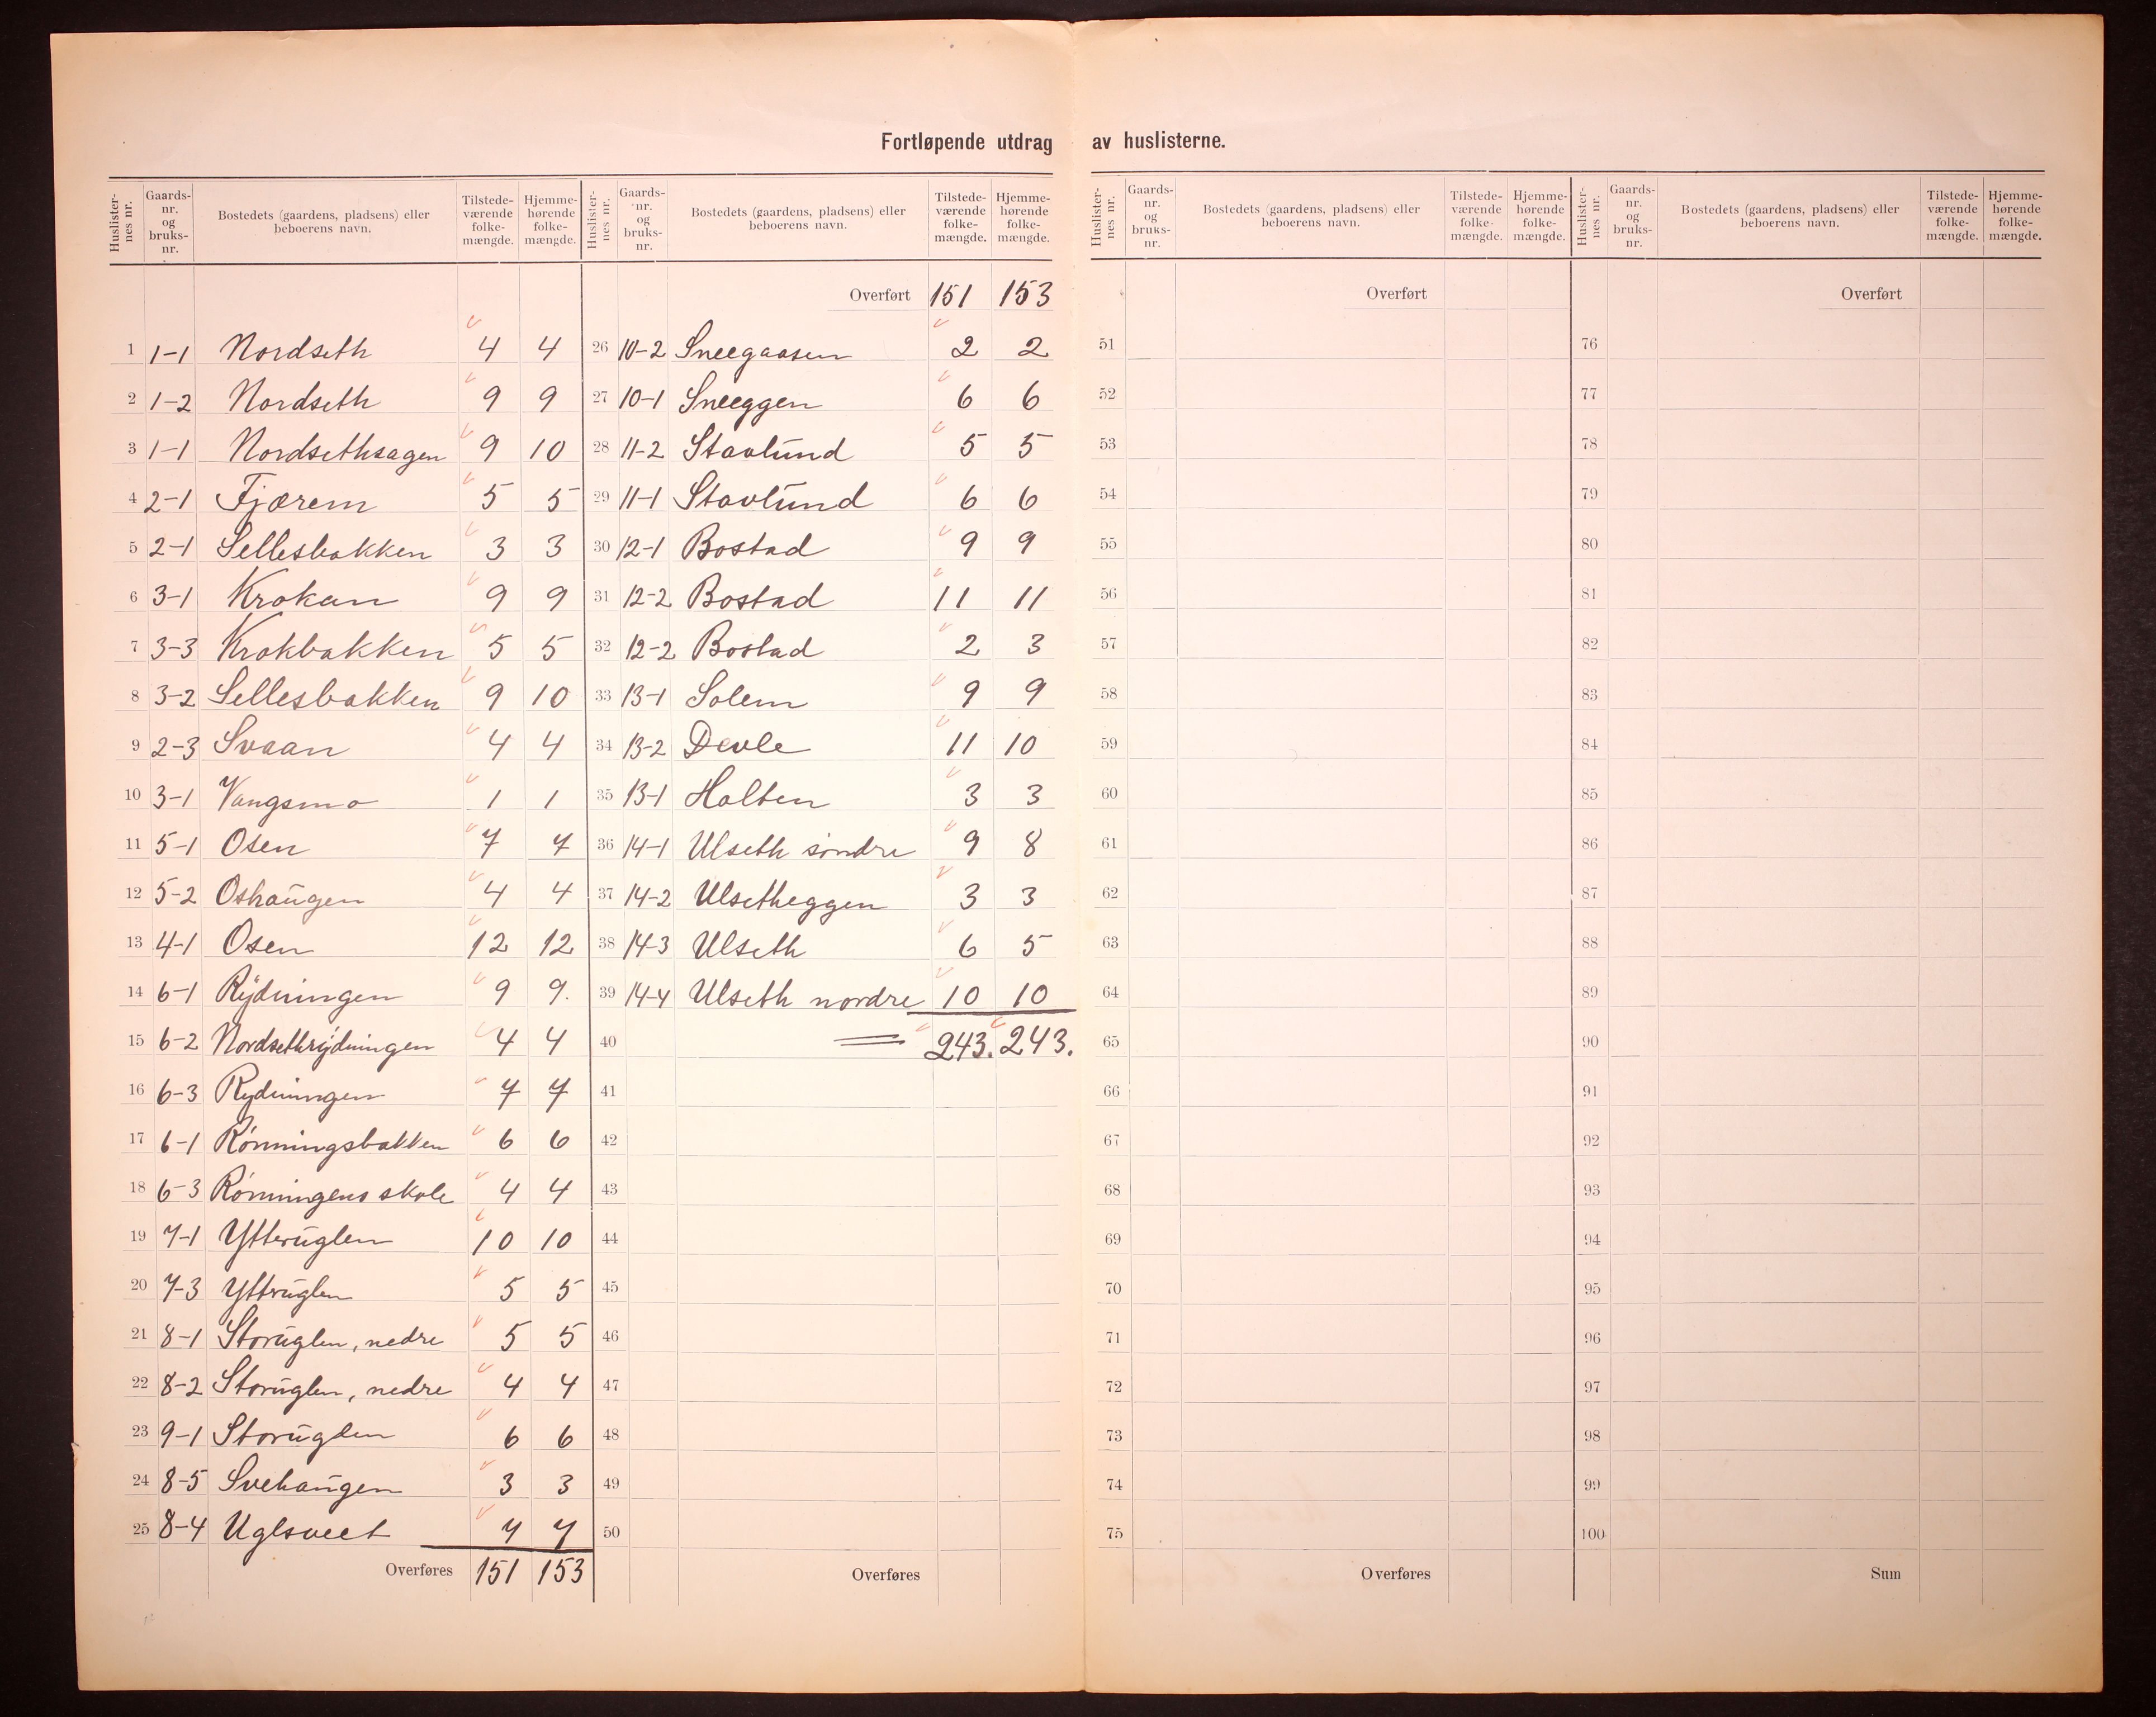 Fortløpende utdrag av huslisterne.
Huslisternes nr. Gaardsnr. og bruksnr. Bostedets (gaardens, pladsens) eller beboerens navn. Tilstedeværende folkemængde. Hjemmehørende folkemængde.
1 1-1 Nordseth 4 4
2 1-2 Nordseth 9 9
3 1-1 Nordsethsagen 9 10
4 2-1 Fjærem 5 5
5 2-1 Sellesbakken 3 3
6 3-1 Krokan 9 9
7 3-3 Krokbakken 5 5
8 3-2 Sellesbakken 9 10
9 2-3 Svaan 4 4
10 3-1 Vangsmo 1 1
11 5-1 Osen 7 7
12 5-2 Oshaugen 4 4
13 4-1 Osen 12 12
14 6-1 Rydningen 9 9.
15 6-2 Nordsethrydningen 4 4
16 6-3 Rydningen 7 7
17 6-1 Rönningsbakken 6 6
18 6-3 Rönningens skole 4 4
19 7-1 Ytteruglen 10 10
20 7-3 Yttruglen 5 5
21 8-1 Storuglen, nedre 5 5
22 8-2 Storuglen, nedre 4 4
23 9-1 Storuglen 6 6
24 8-5 Svehaugen 3 3
25 8-4 Uglsveet 7 7
Overføres 151 153
Huslisternes nr. Gaardsnr. og bruksnr. Bostedets (gaardens, pladsens) eller beboerens navn. Tilstedeværende folkemængde. Hjemmehørende folkemængde.
Overført 151 153
26 10-2 Sneegaasen 2 2
27 10-1 Sneeggen 6 6
28 11-2 Stavlund 5 5
29 11-1 Stavlund 6 6
30 12-1 Bostad 9 9
31 12-2 Bostad 11 11
32 12-2 Bostad 2 3
33 13-1 Solem 9 9
34 13-2 Devle 11 10
35 13-1 Halten 3 3
36 14-1 Ulseth söndre 9 8
37 14-2 Ulsetheggen 3 3
38 14-3 Ulseth 6 5
39 14-4 Ulseth nordre 10 10
40 243. 243.
41
42
43
44
45
46
47
48
49
50
Overføres
Huslisternes nr. Gaardsnr. og bruksnr. Bostedets (gaardens, pladsens) eller beboerens navn. Tilstedeværende folkemængde. Hjemmehørende folkemængde.
Overført
51
52
53
54
55
56
57
58
59
60
61
62
63
64
65
66
67
68
69
70
71
72
73
74
75
Overføres
Huslisternes nr. Gaardsnr. og bruksnr. Bostedets (gaardens, pladsens) eller beboerens navn. Tilstedeværende folkemængde. Hjemmehørende folkemængde.
Overført
76
77
78
79
80
81
82
83
84
85
86
87
88
89
90
91
92
93
94
95
96
97
98
99
100
Sum